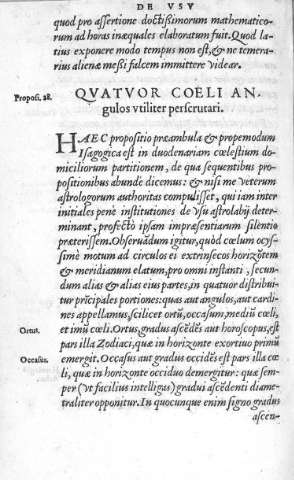 DE VSV
quod pro assertione doctissimorum mathematico-
rum ad horas inæquales elaboratum fuit. Quod la-
tius exponere modo tempus non est, & ne temera-
rius alienæ messi falcem immittere videar.
Proposi. 28.
QVATVOR COELI AN-
gulos vtiliter perscrutari.
HAEC propositio præambula & propemodum
Isagogica est in duodenariam cœlestium do-
miciliorum partitionem, de qua sequentibus pro
positionibus abunde dicemus: & nisi me veterum
astrologorum authoritas compulisset, qui iam inter
initiales penè institutiones de vsu astrolabij deter-
minant, profectò ipsam impræsentiarum silentio
præterissem. Obseruãdum igitur, quòd cœlum ocys-
simè motum ad circulos ei extrinsecos horizõtem
& meridianum elatum, pro omni instanti, secun-
dum alias & alias eius partes, in quatuor distribui-
tur prĩcipales portiones: quas aut angulos, aut cardi-
nes appellamus, scilicet ortũ, occasum, mediũ cœli,
et imũ cœli. Ortus, gradus ascẽdẽs aut horoscopus, est
Ortus.
pars illa Zodiaci, quæ in horizonte exortiuo primũ
emergit. Occasus aut gradus occidẽs est pars illa cœ
Occasus.
li, quæ in horizonte occiduo demergitur: quæ sem-
per (vt facilius intelligas) gradui ascẽdenti diame-
traliter opponitur. In quocunque enim signo gradus
ascen-